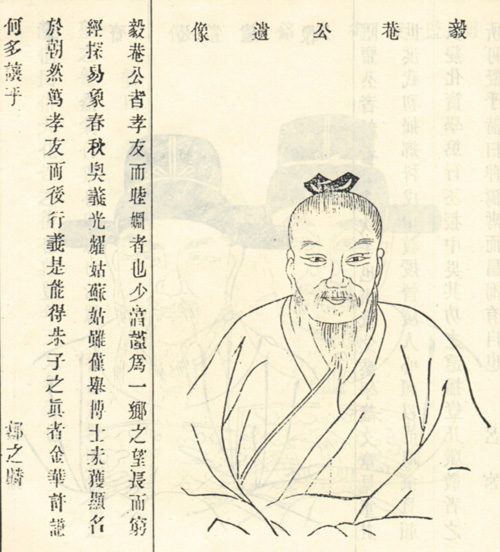 毅菴公遺像
毅菴公者孝友而睦婣者也少爲一鄉之望長而窮
經探易象春秋奧義光耀姑蘇姑雖僅舉博士未獲顯名
於朝然篤孝友而後行義是能得朱子之眞者金華許
何多讓乎